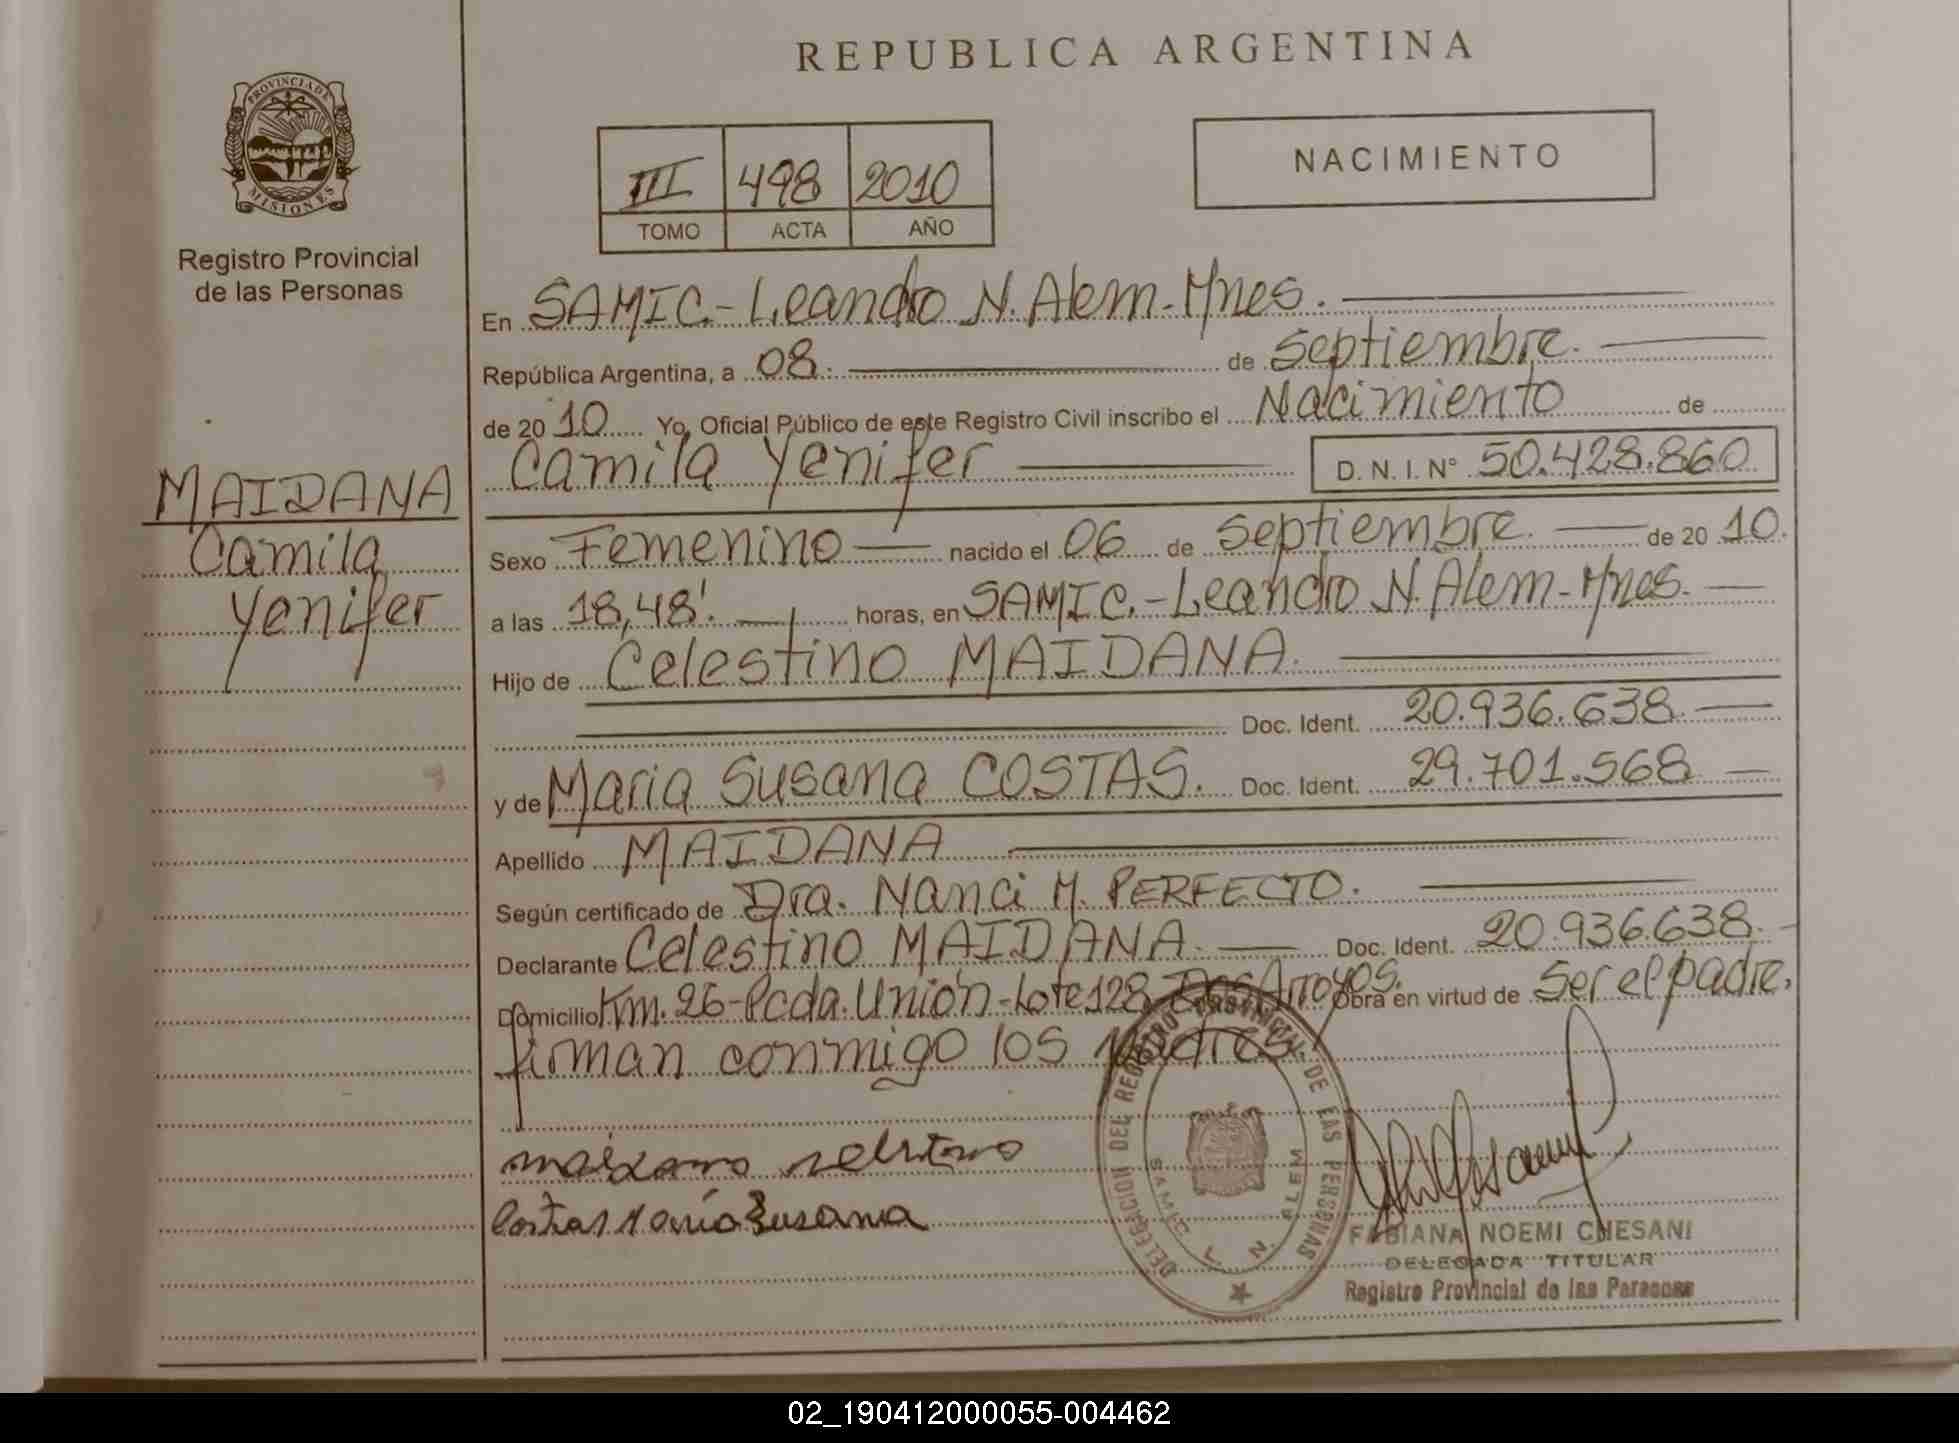 REPUBLICA ARGENTINA
PROVINCIA DE
MISIONES
Registro Provincial
de las Personas
III 498 2010
TOMO ACTA AÑO
NACIMIENTO
En SAMIC.-Leandro N. Alem-Mnes.
República Argentina, a 08. de Septiembre.
de 2010 Yo, Oficial Público de este Registro Civil inscribo el Nacimiento de
Camila Yenifer D. N. I. N° 50.428.860
MAIDANA
Camila
Yenifer
Sexo Femenino nacido el 06 de Septiembre. de 2010.
a las 18,48'. horas, en SAMIC.-Leandro N. Alem-Mnes.
Hijo de Celestino MAIDANA.
Doc. Ident. 20.936.638.
y de Maria Susana COSTAS. Doc. Ident. 29.701.568
Apellido MAIDANA
Según certificado de Dra. Nanci M. PERFECTO.
Declarante Celestino MAIDANA. Doc. Ident. 20.936.638.
Domicilio Km. 26-Pcda. Unión-Lote 128 Dos Arroyos. Obra en virtud de Ser el padre.
firman conmigo los Padres.
Costas María Susana
DELEGACION DEL REGISTRO PROVINCIAL DE LAS PERSONAS
SAMIC L. N. ALEM
FABIANA NOEMI CHESANI
DELEGADA TITULAR
Registro Provincial de las Personas
02_190412000055-004462